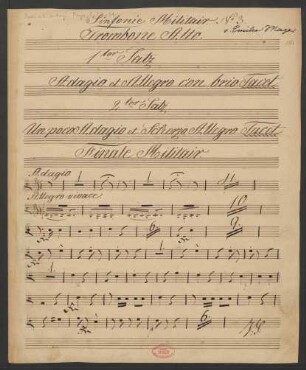 Sinfonie Militair № 3.
Trombone Alto
1ter Satz
Adagio et Allegro con brio Tacet
2ter Satz
Un poco Adagio et Scherzo Allegro Tacet
Finale Militair
Adagio
11
Allegro vivace
10
6
9
6
V.S.